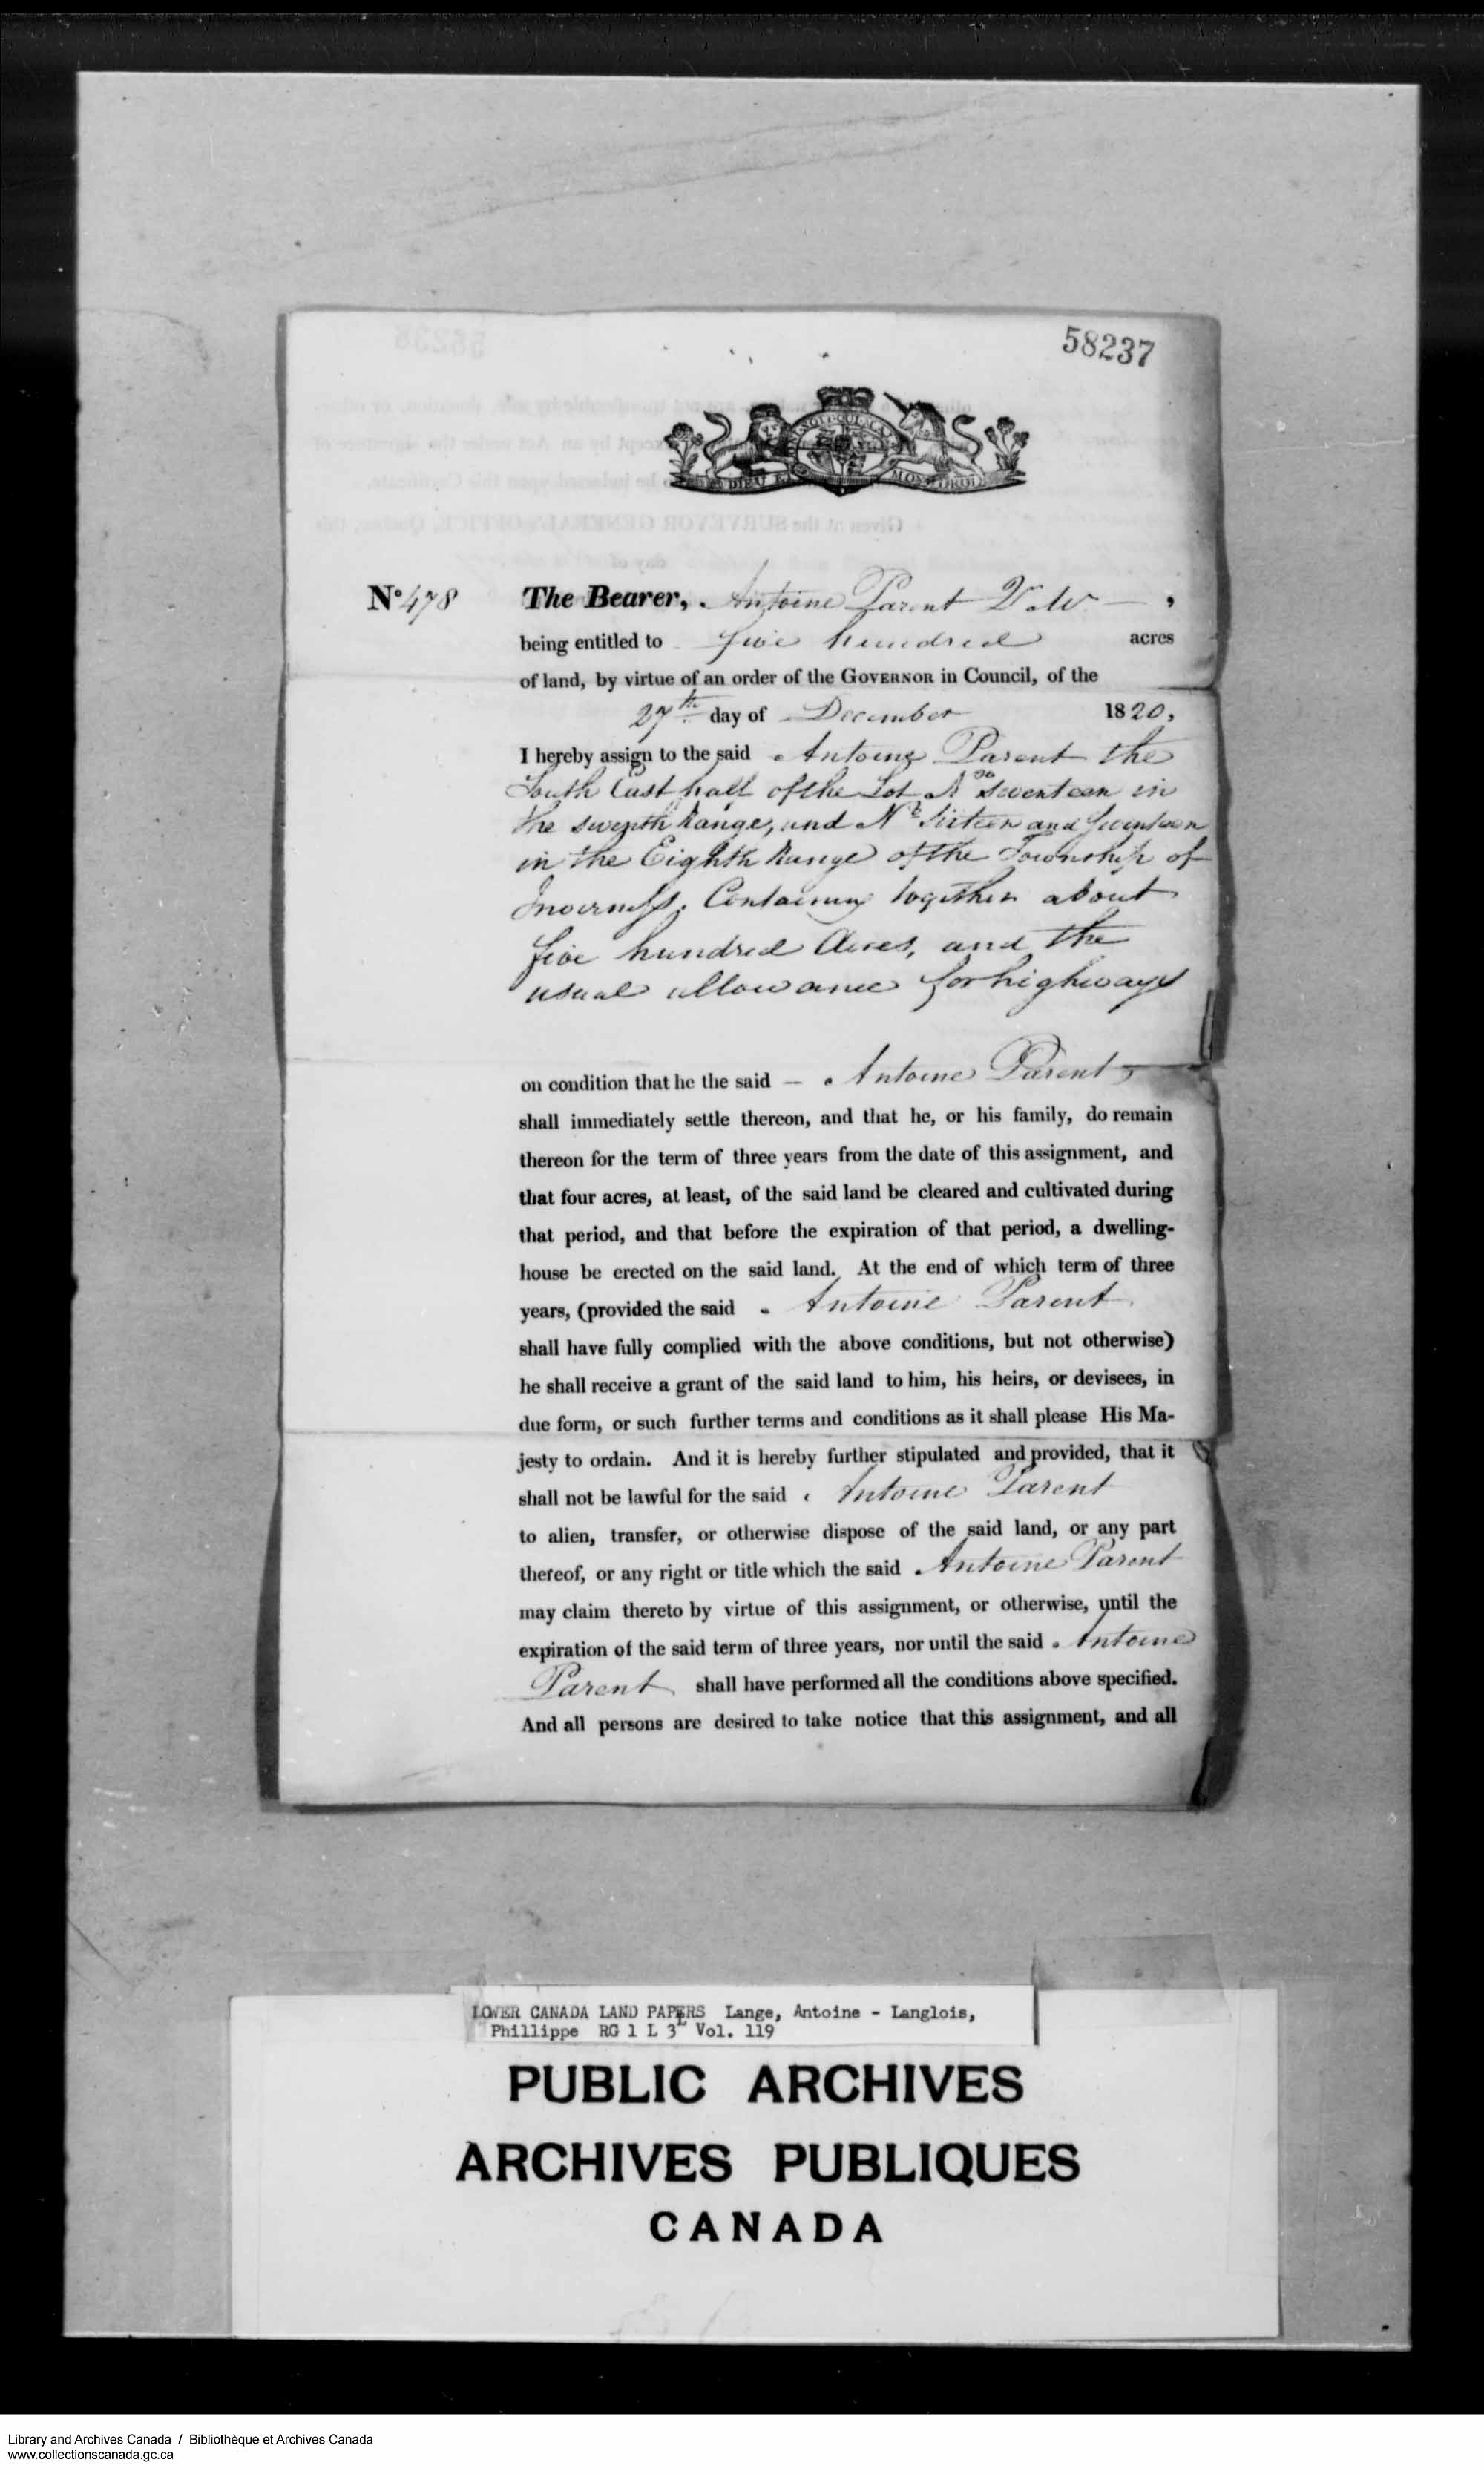 58237
DIEU ET MON DROIT
No. 478 The Bearer, Antoine Parent —,
being entitled to five hundred acres
of land, by virtue of an order of the GOVERNOR in Council, of the
27th day of December 1820,
I hereby assign to the said Antoine Parent the
South East half of the Lot No Seventeen in
the seventh Range, and No Sixteen and Seventeen
in the Eighth Range of the Township of
Inverness, Containing together about
five hundred Acres, and the
usual allowance for highways
on condition that he the said — Antoine Parent,
shall immediately settle thereon, and that he, or his family, do remain
thereon for the term of three years from the date of this assignment, and
that four acres, at least, of the said land be cleared and cultivated during
that period, and that before the expiration of that period, a dwelling-
house be erected on the said land. At the end of which term of three
years, (provided the said Antoine Parent
shall have fully complied with the above conditions, but not otherwise)
he shall receive a grant of the said land to him, his heirs, or devisees, in
due form, or such further terms and conditions as it shall please His Ma-
jesty to ordain. And it is hereby further stipulated and provided, that it
shall not be lawful for the said Antoine Parent
to alien, transfer, or otherwise dispose of the said land, or any part
thereof, or any right or title which the said Antoine Parent
may claim thereto by virtue of this assignment, or otherwise, until the
expiration of the said term of three years, nor until the said Antoine
Parent shall have performed all the conditions above specified.
And all persons are desired to take notice that this assignment, and all
LOWER CANADA LAND PAPERS Lange, Antoine - Langlois,
Phillippe RG 1 L 3L Vol. 119
PUBLIC ARCHIVES
ARCHIVES PUBLIQUES
CANADA
Library and Archives Canada / Bibliothèque et Archives Canada
www.collectionscanada.gc.ca